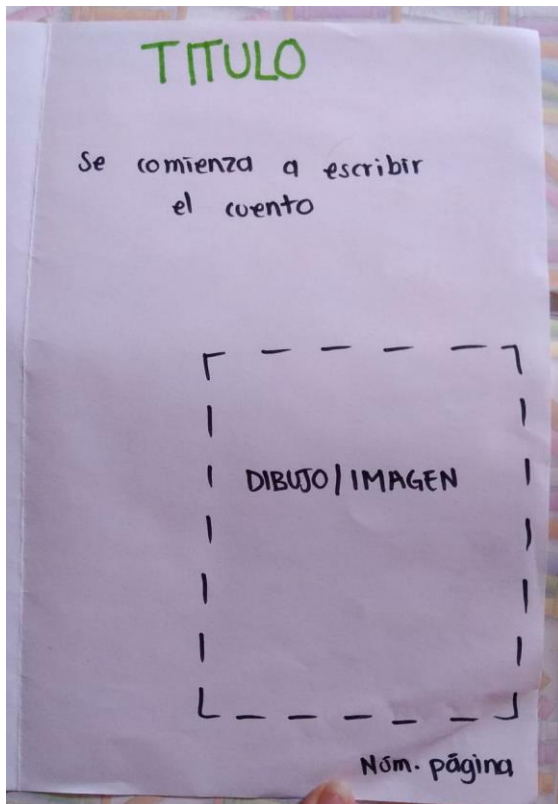 TITULO
Se comienza a escribir
el cuento
DIBUJO/IMAGEN
Núm. página